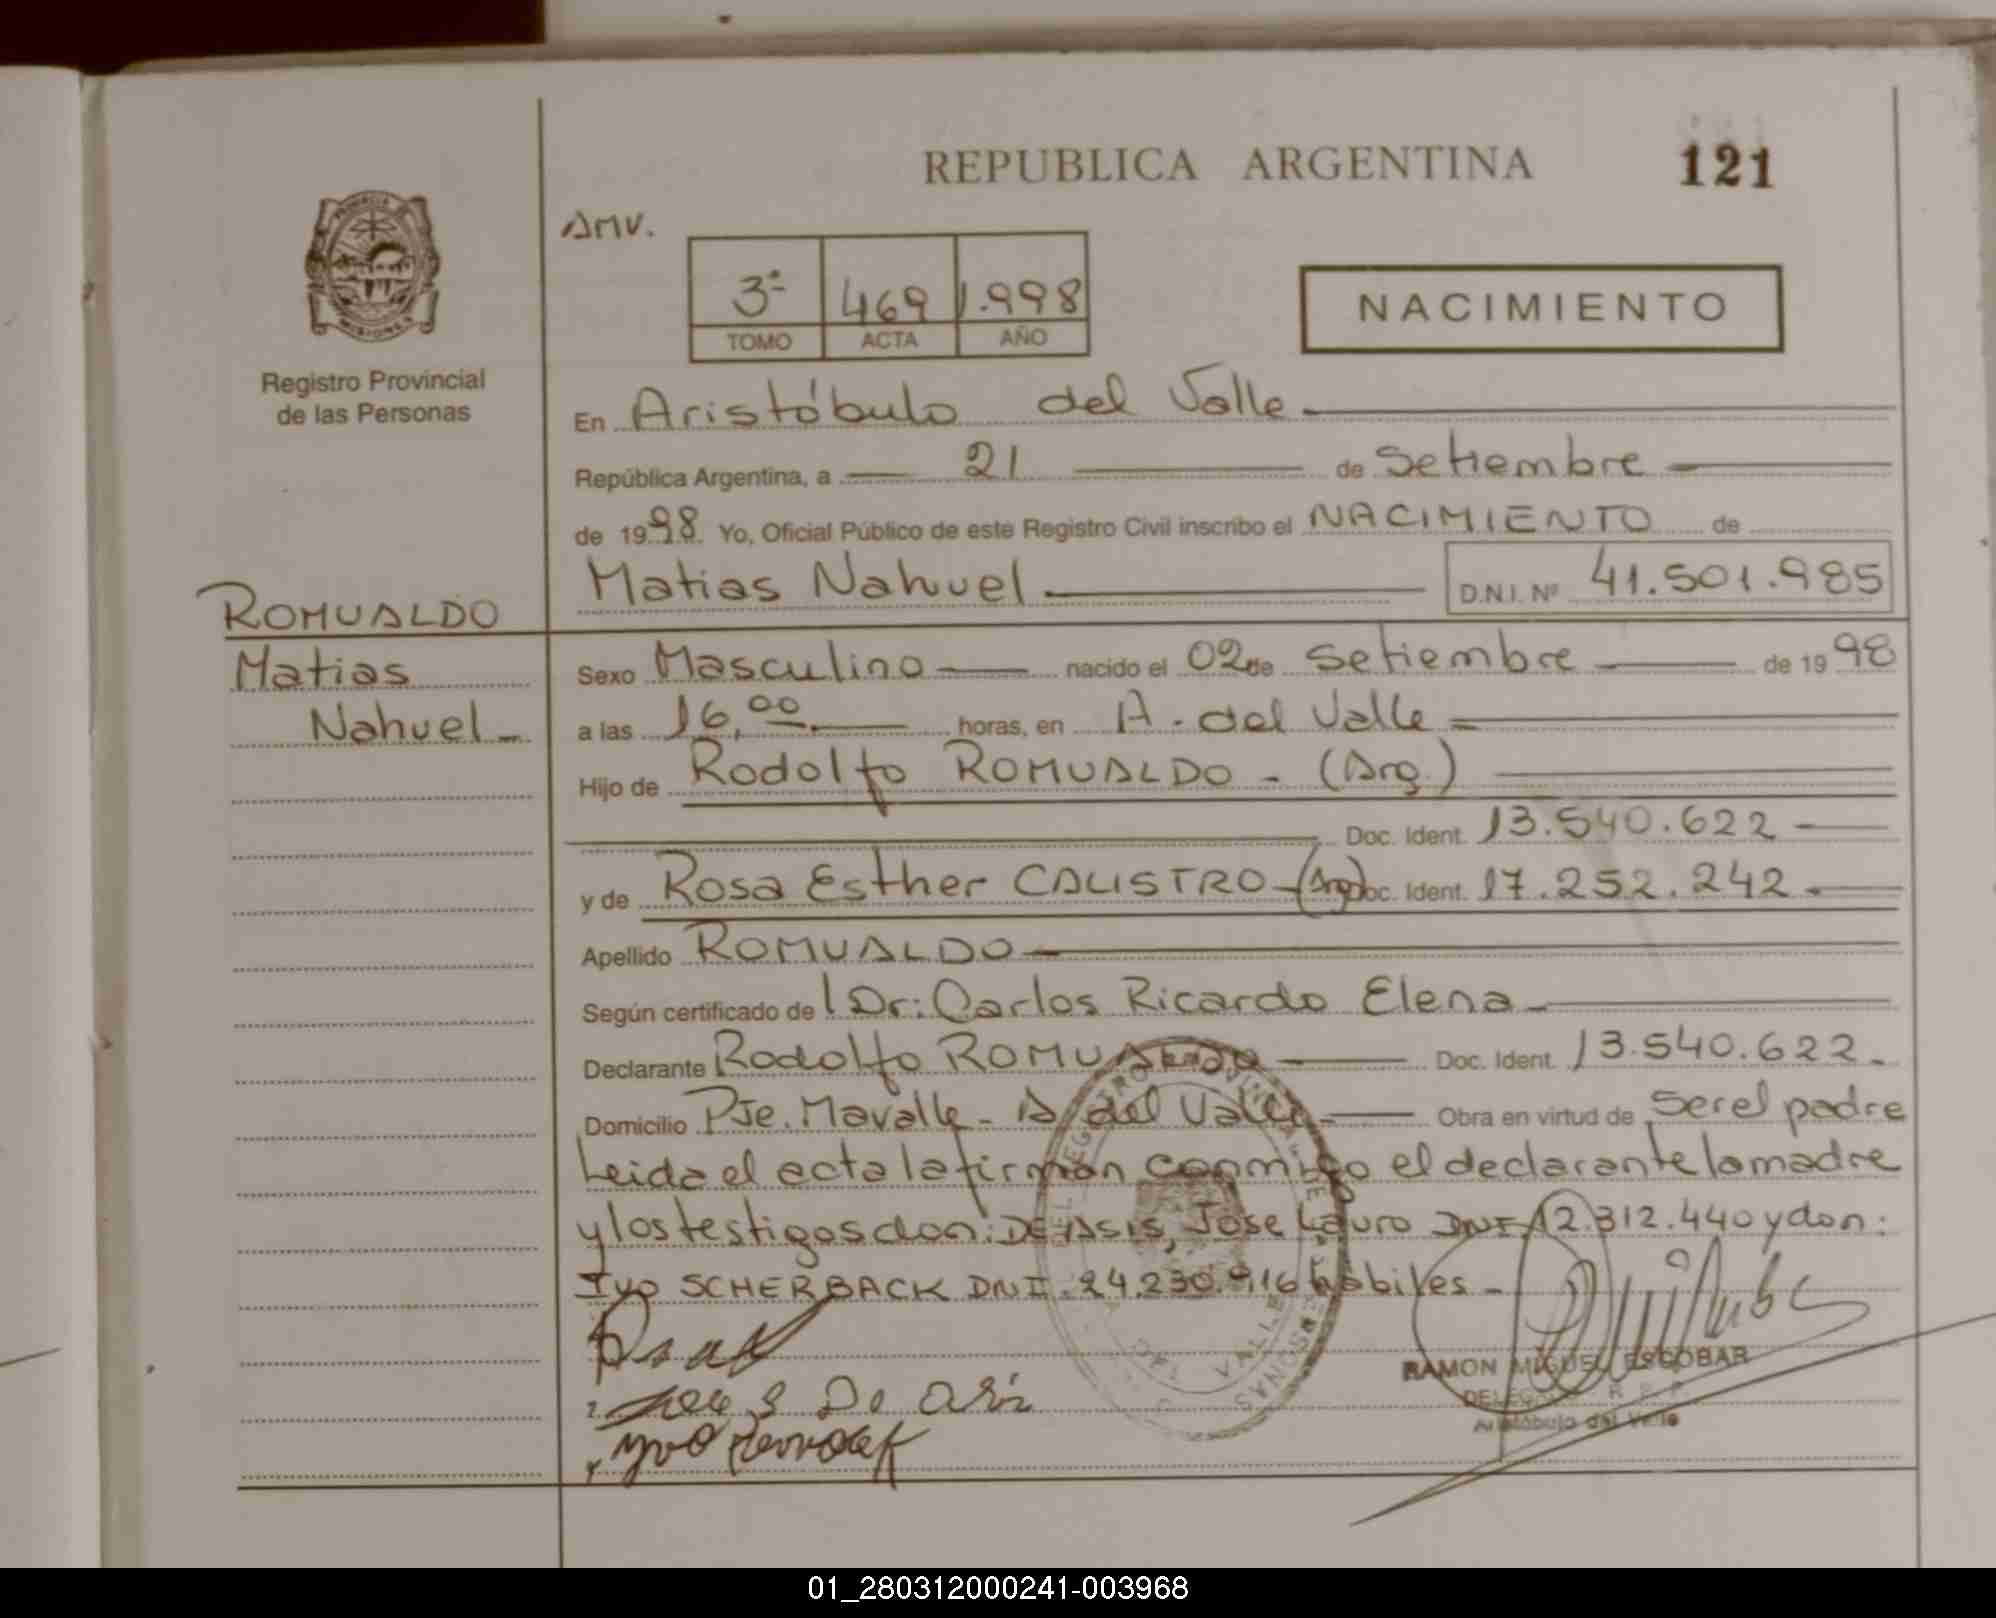 REPUBLICA ARGENTINA
121
AMV.
3ª 469 1.998
TOMO ACTA AÑO
NACIMIENTO
PROVINCIA DE
MISIONES
Registro Provincial
de las Personas
En Aristóbulo del Valle
República Argentina, a 21 de Setiembre
de 1998. Yo, Oficial Público de este Registro Civil inscribo el NACIMIENTO de
Matias Nahuel D.N.I. Nº 41.501.985
ROMUALDO
Matias
Nahuel
Sexo Masculino nacido el 02 de Setiembre de 1998
a las 16,00 horas, en A. del Valle
Hijo de Rodolfo ROMUALDO - (Arg.)
Doc. Ident. 13.540.622
y de Rosa Esther CALISTRO - (Arg) Doc. Ident. 17.252.242.
Apellido ROMUALDO
Según certificado de l Dr: Carlos Ricardo Elena
Declarante Rodolfo ROMUALDO Doc. Ident. 13.540.622.
Domicilio Pje. Mavalle - A del Valle Obra en virtud de ser el padre
Leida el acta la firman conmigo el declarante la madre
y los testigos don: DE ASIS, Jose Lauro DNI. 12.312.440 y don:
Ivo SCHERBACK DNI. 24.230.916 hábiles -
RAMON MIGUEL ESCOBAR
Aristóbulo del Valle
01_280312000241-003968